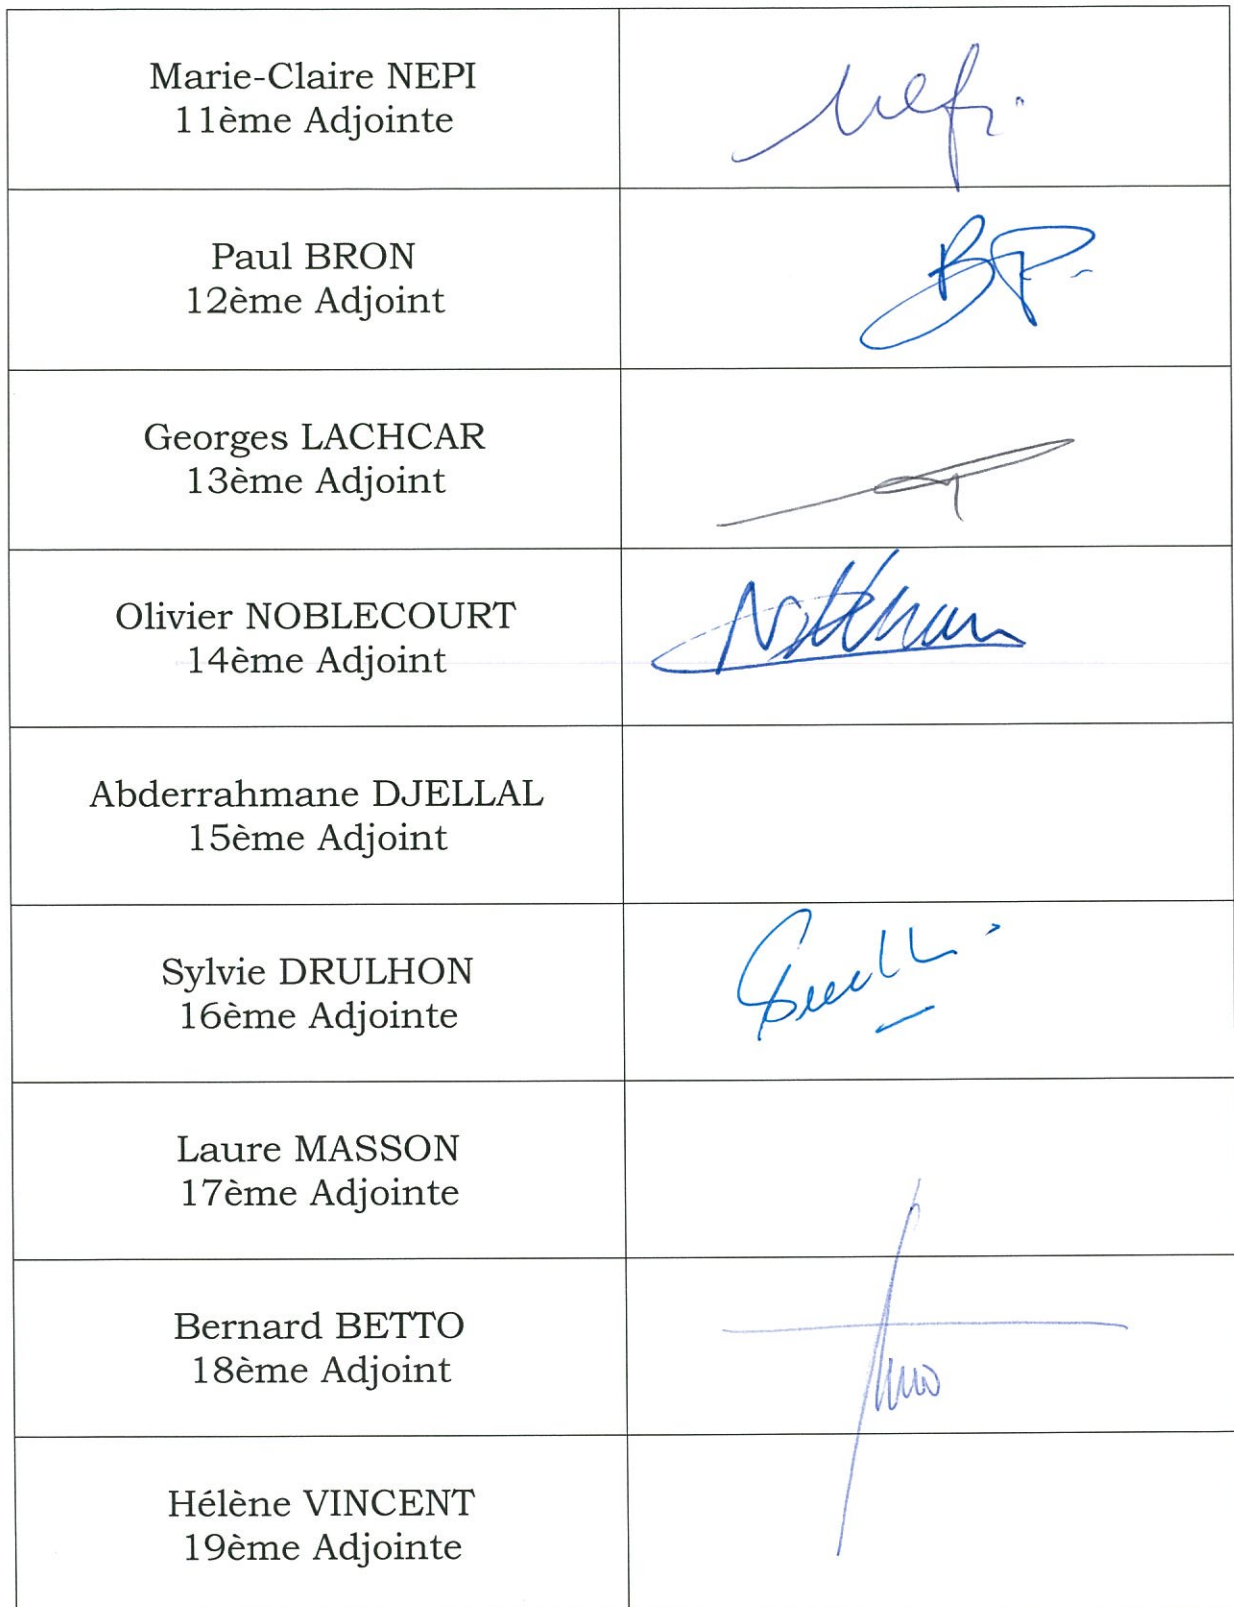 Marie-Claire NEPI
11ème Adjointe
Paul BRON
12ème Adjoint
BP.
Georges LACHCAR
13ème Adjoint
Olivier NOBLECOURT
14ème Adjoint
Abderrahmane DJELLAL
15ème Adjoint
Sylvie DRULHON
16ème Adjointe
Laure MASSON
17ème Adjointe
Bernard BETTO
18ème Adjoint
Hélène VINCENT
19ème Adjointe